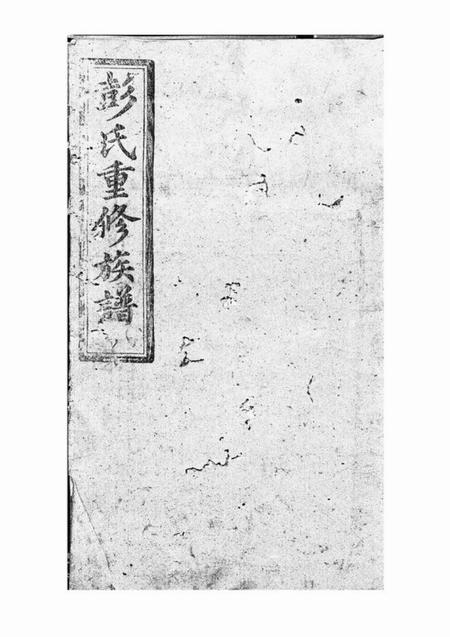 彭氏重修族譜